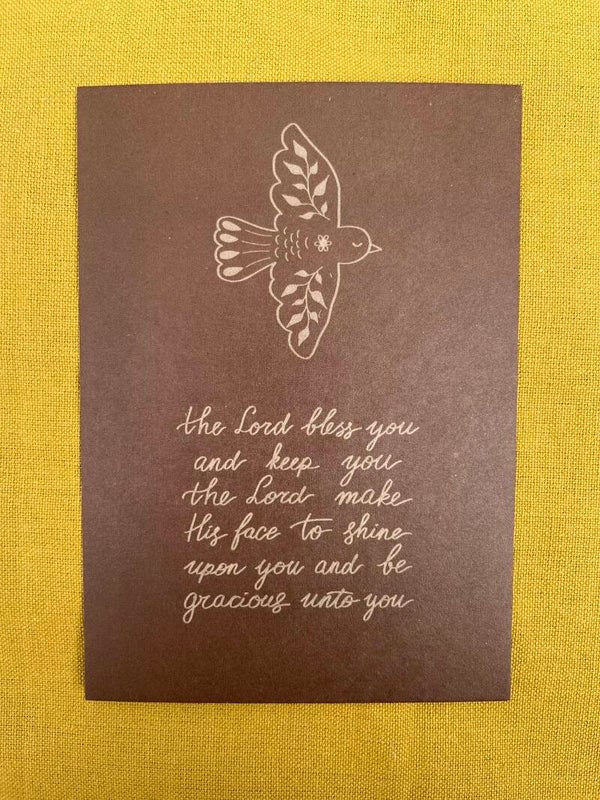 the Lord bless you
and keep you
the Lord make
His face to shine
upon you and be
gracious unto you